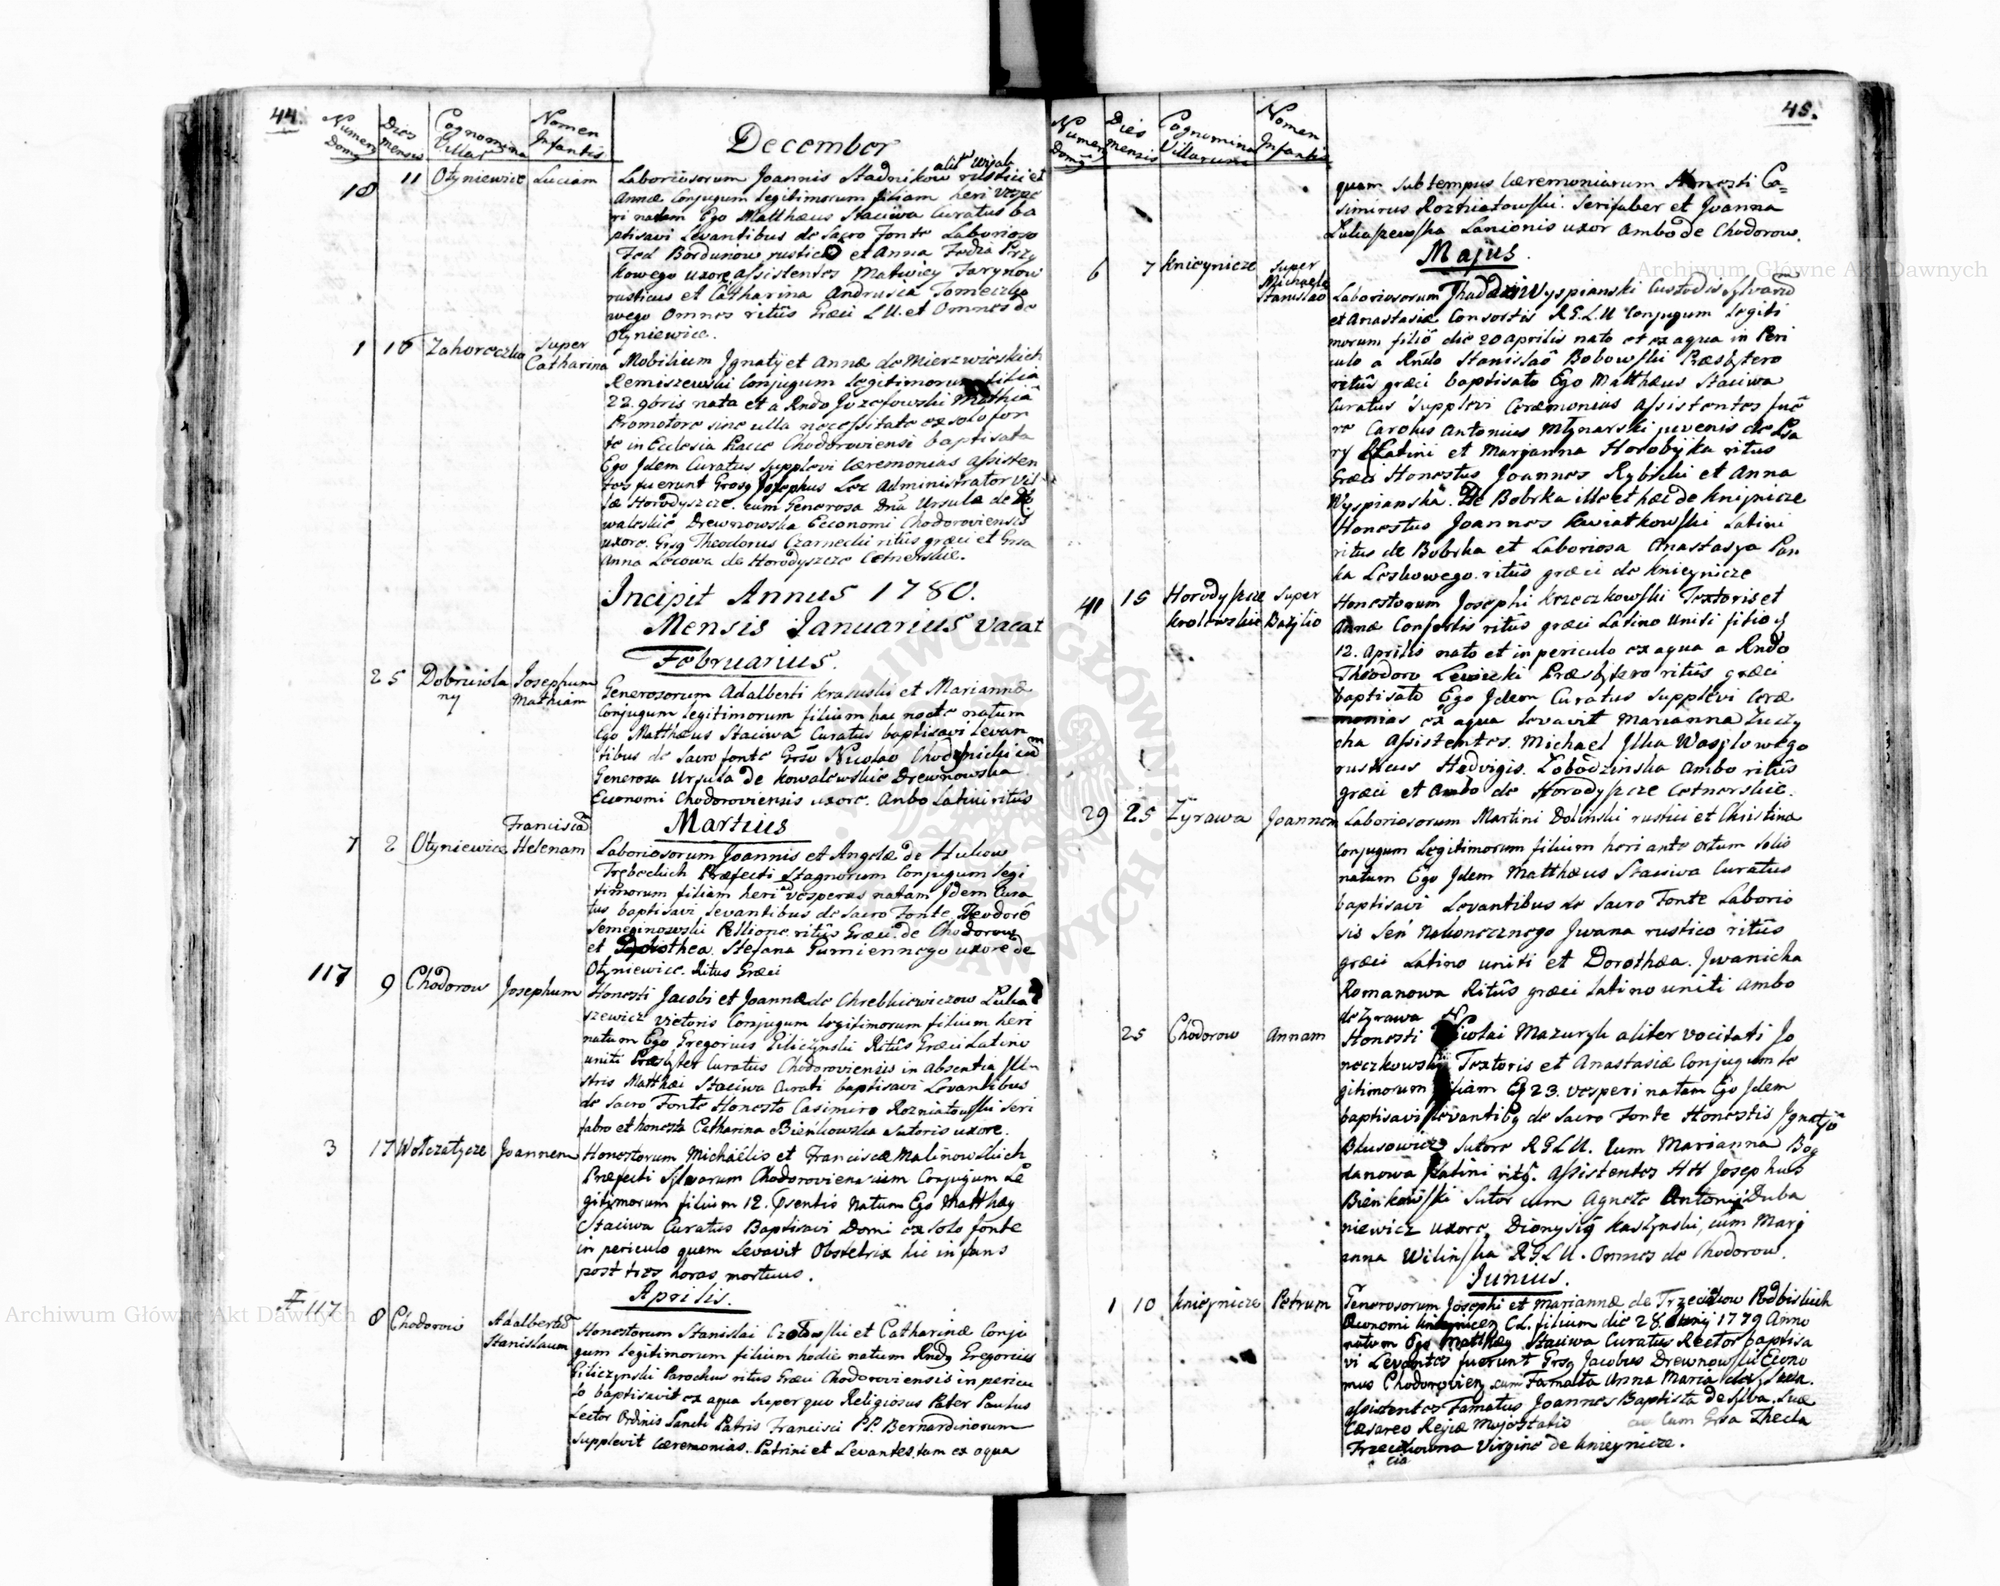 44.
Numerus Domus
Dies mensis
Cognomina Villar
Nomen Infantis
December
18 11 Otyniewice Luciam
Laboriosorum Joannis Stadnikow rustici et
Annæ Conjugum legitimorum filiam heri vespe
ri natam Ego Matthæus Staciwa Curatus ba
ptisavi Levantibus de Sacro Fonte Laborioso
Fed Bordunow rustico et Anna Fedia Przy
kowego uxore assistentes Matwiey Jarynow
rusticus et Catharina Andrusia Tomeczko
wego omnes ritûs Græci L.U. et Omnes de
Otyniewice.
1 16 Zahoreczko Super Catharina
Nobilium Jgnatÿ et Annæ de Mierzwieskich
Remiszewski Conjugum legitimorum filia
22. 9bris nata et a Rndo Jozefowski Mathia
Promotore sine ulla necessitate ex solo fon
te in Ecclesia Paccc Chodoroviensi baptisata
Ego Jdem Curatus Supplevi Cæremonias assisten
tes fuerunt Grosq Josephus Lec Administrator vil
læ Horodyszcze cum Generosa Dna Ursula de Ko
waleskie Drewnowska Œconomi Chodoroviensis
uxore. Grsq Theodorus Czarnecki ritûs græci et Grsa
Anna Lecowa de Horodyszcze Cetnerskie.
Incipit Annus 1780.
Mensis Januarius vacat
Februarius.
25 Dobriwla ny Josephum Mathiam
Generosorum Adalberti Krakuski et Mariannæ
Conjugum legitimorum filium hac nocte natum
Ego Matthæus Staciwa Curatus baptisavi Levan
tibus de Sacro fonte Grso Nicolao Chodynicki cum
Generosa Ursula de Kowalewskie Drewnowska
Œconomi Chodoroviensis uxore. Ambo Latini ritûs
Martius
7 2 Otyniewice Franciscã Helenam
Laboriosorum Joannis et Angelæ de Hukow
Trębeckich Præfecti Stagnorum Conjugum legi
timorum filiam heri ad vesperas natam Jdem Cura
tus baptisavi levantibus de Sacro Fonte Theodoro
Semeginowski Pellione ritûs Græci de Chodorow
et Dorothea Stefana Gumiennego uxore de
Otyniewice. Ritus Græci
117 9 Chodorow Josephum
Honesti Jacobi et Joannæ de Chrebkiewiczow Luka
szewicz Vietoris Conjugum legitimorum filium heri
natum Ego Gregorius Piliczynski Ritûs Græci Latino
uniti Præsbyter Curatus Chodoroviensis in absentia Jllu
stris Matthæi Staciwa Curati baptisavi Levantibus
de Sacro Fonte Honesto Casimiro Rozniatowski Seri
fabro et honesta Catharina Bieńkowska Sutoris uxore.
3 17 Wołczatycze Joannem
Honestorum Michaëlis et Franciscæ Malinowskich
Præfecti Sylvarum Chodoroviensium Conjugum Le
gitimorum filium 12. Præsentis Natum Ego Matthæq
Staciwa Curatus Baptisavi Domi ex solo fonte
in periculo quem Levavit Obstetrix hic infans
post tres horas mortuus.
Aprilis.
117 8 Chodorow Adalbertũ Stanislaum
Honestorum Stanislai Czotowski et Catharinæ Conju
gum legitimorum filium hodie natum Rndq Gregorius
Piliczynski Parochus ritus Græci Chodoroviensis in pericu
lo baptisavit ex aqua super quo Religiosus Pater Paulus
Lector Ordinis Sancti Patris Francisci PP. Bernardinorum
Supplevit Cæremonias. Patrini et Levantes tam ex aqua
45.
Numerus Domus
Dies mensis
Cognomina Villarum
Nomen Infantis
quam sub tempus Cæremoniarum Honesti Ca=
simirus Rozniatowski Serifaber et Joanna
Lanionis uxor ambo de Chodorow.
Majus.
6 7 Knieynicze Super Michaele Stanislao
Laboriosorum Thaddæi Wyspianski Custodis Sylvarũ
et Anastasiæ Consortis R.G.L.U Conjugum legiti
morum filiô die 20 aprilis nato et ex aqua in Peri
culo a Rñdo Stanislaô Bobowski Præsbytero
ritûs græci baptisato Ego Matthæus Staciwa
Curatus Supplevi Ceræmonias assistentes fuê
re Carolus Antonius Młynarski juvenis de Psa
ry Latini et Marjanna Horobijka ritus
Græci Honestus Joannes Rybicki et Anna
Wyspianska. De Bobrka ille et hæc de Knijnicze
Honestus Joannes Kwiatkowski Latini
ritus de Bobrka et Laboriosa Anastasya Pan
ka Leskowego ritûs græci de Knieynicze
41 15 Horodyszcze krolewskie Super Bazylio
Honestorum Josephi Krzeczkowski Textoris et
Annæ Consortis ritûs græci Latino uniti filio q
12. Aprilis nato et in periculo ex aqua a Rndo
Theodoro Lewicki Præsbytero ritûs græci
baptisatô Ego Jdem Curatus Supplevi Ceræ
monias ex aqua levavit Marianna Łuczy
cha Assistentes. Michael Jlka Wasylowego
rusticus Hedvigis Łobodzinska ambo ritûs
græci et ambo de Horodyszcze Cetnerskie.
29 25 Zyrawa Joannem
Laboriosorum Martini Dolinski rustici et Christina
Conjugum Legitimorum filium heri ante ortum solis
natum Ego Jdem Matthæus Staciwa Curatus
baptisavi Levantibus de Sacro Fonte Laborio
sis Señ Nakonecznego Jwana rustico ritûs
græci Latino uniti et Dorothæa. Jwanicha
Romanowa Ritûs græci Latino uniti ambo
de Zyrawa
25 Chodorow Annam
Honesti Nicolai Mazuryk aliter vocitati Jo
neczkowski Textoris et Anastasiæ Conjugum le
gitimorum filiam 23. vesperi natam Ego Jdem
baptisavi levantibq de Sacro Fonte Honestis Jgnatjo
Blusowicz Sutore R.G.L.U. Cum Marianna Bog
danowa Latini ritq. Assistentes HH Josephus
Bieńkowski Sutor cum Agnete Antonij Duba
niewicz uxore, Dionysiq Kaszynski, cum Marj
anna Wilińska R.G.L.U. Omnes de Chodorow.
Junius.
1 10 Knieynicze Petrum
Generosorum Josephi et Mariannæ de Trzeciakow Podbielskich
Œconomi Knieynicen C.L. filium die 28 Junij 1779 Anno
natum Ego Matthæq Staciwa Curatus Rector baptisa
vi Levantes fuerunt Grsq Jacobus Drewnowski Econo
mus Chodorovien cum Famata Anna Maria
assistentes Famatus Joannes Baptista de Sylba Suæ
Cæsareo Regiæ Majestatis Cum Grsa Thecla
Trzeciakowna Virgine de Knieynicze.
cia
Archiwum Główne Akt Dawnych
Archiwum Główne Akt Dawnych
ARCHIWUM GŁÓWNE AKT DAWNYCH